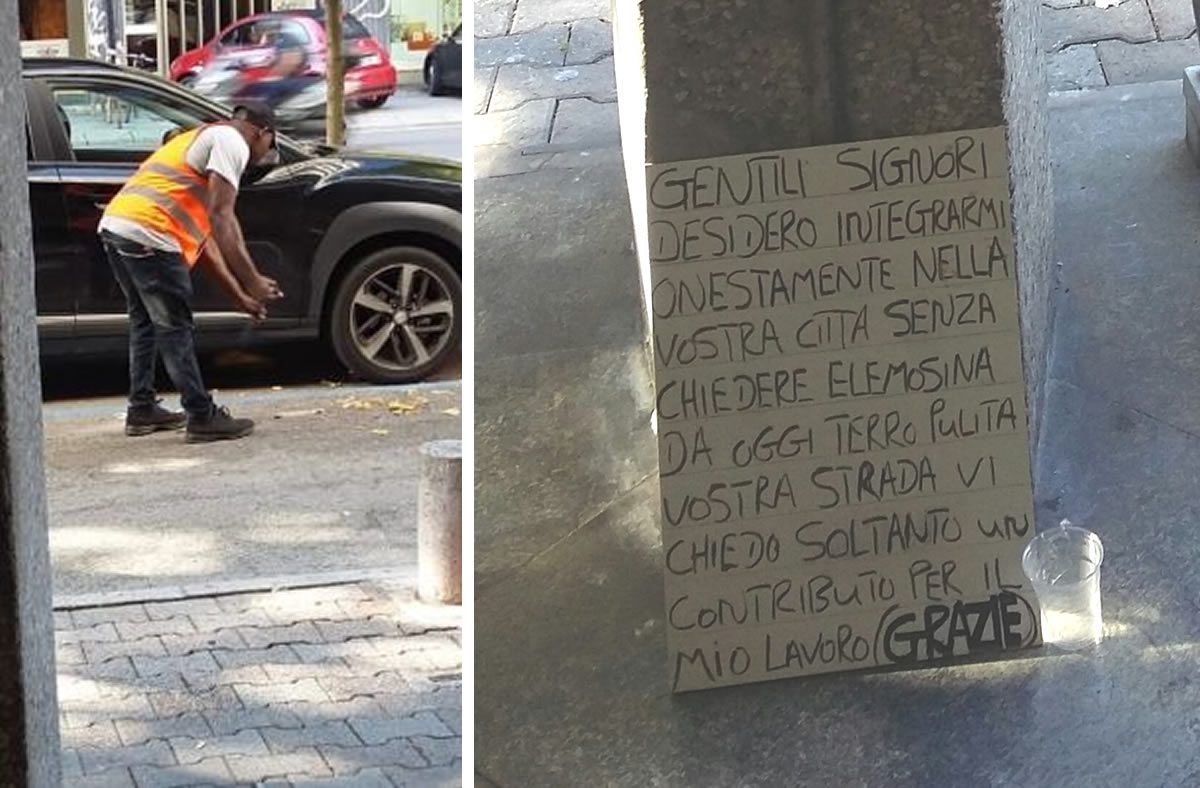 GENTILI SIGNORI
DESIDERO INTEGRARMI
ONESTAMENTE NELLA
VOSTRA CITTA SENZA
CHIEDERE ELEMOSINA
DA OGGI TERRO PULITA
VOSTRA STRADA VI
CHIEDO SOLTANTO UN
CONTRIBUTO PER IL
MIO LAVORO (GRAZIE)